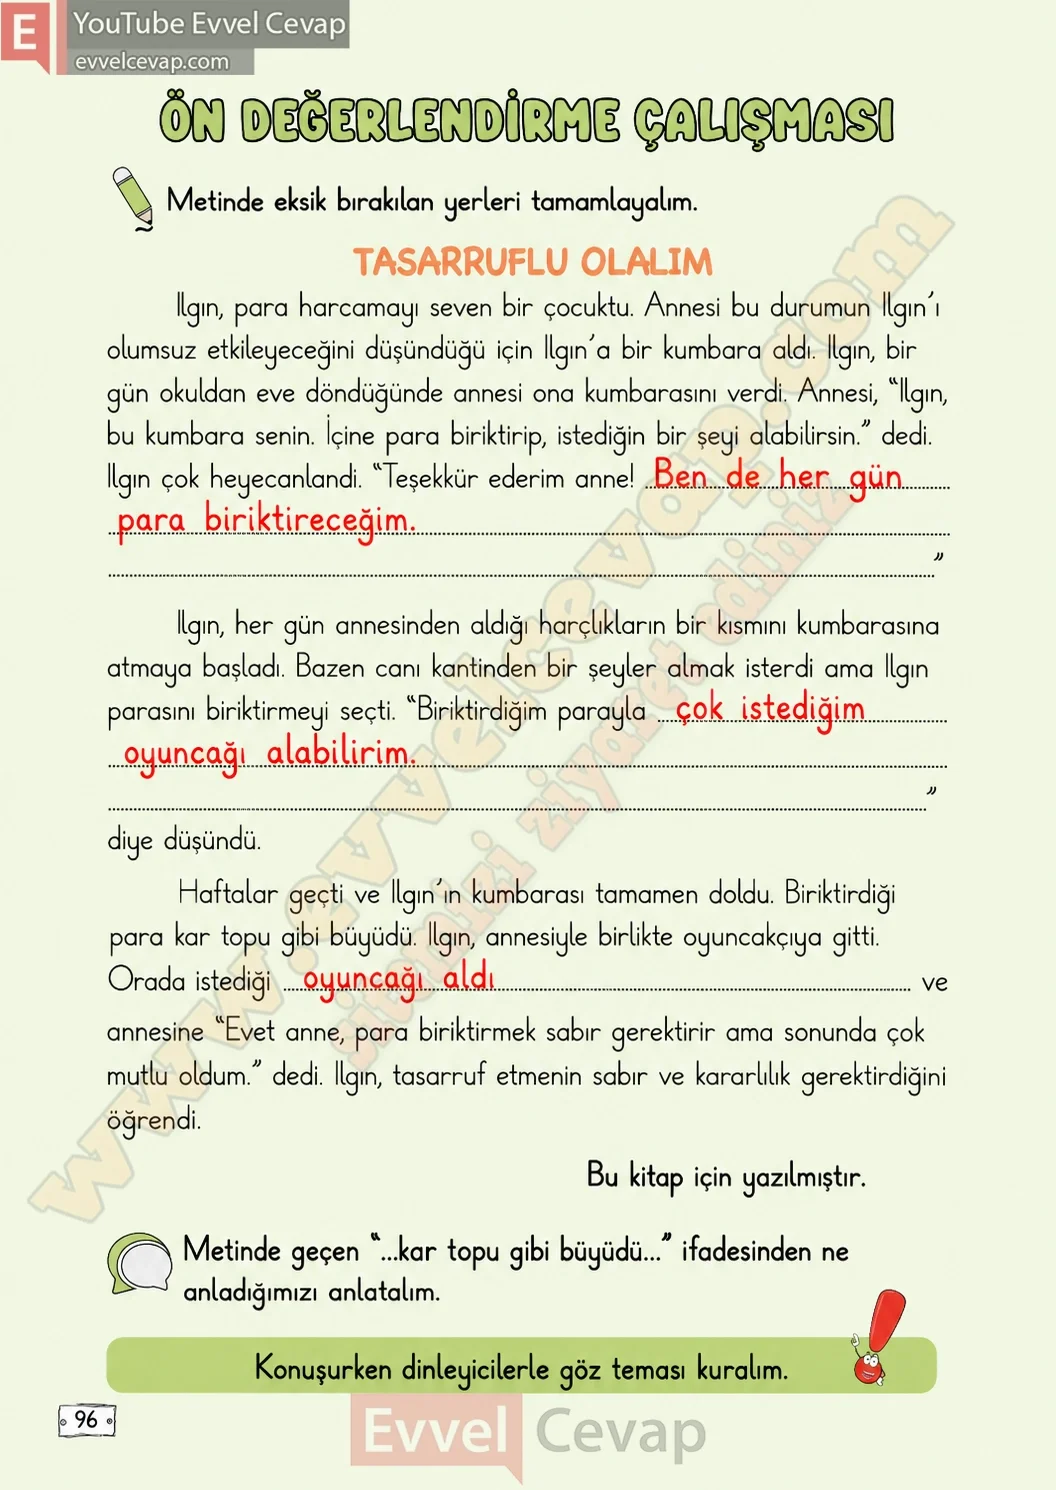 E YouTube Evvel Cevap
evvelcevap.com
ÖN DEĞERLENDİRME ÇALIŞMASI
Metinde eksik bırakılan yerleri tamamlayalım.
TASARRUFLU OLALIM
Ilgın, para harcamayı seven bir çocuktu. Annesi bu durumun Ilgın'ı
olumsuz etkileyeceğini düşündüğü için Ilgın'a bir kumbara aldı. Ilgın, bir
gün okuldan eve döndüğünde annesi ona kumbarasını verdi. Annesi, “Ilgın,
bu kumbara senin. İçine para biriktirip, istediğin bir şeyi alabilirsin.” dedi.
Ilgın çok heyecanlandi. “Teşekkür ederim anne! Ben de her gün
para biriktireceğim.
”
Ilgın, her gün annesinden aldığı harçlıkların bir kısmını kumbarasına
atmaya başladı. Bazen canı kantinden bir şeyler almak isterdi ama Ilgın
parasını biriktirmeyi seçti. “Biriktirdiğim parayla çok istediğim
oyuncağı alabilirim.
”
diye düşündü.
Haftalar geçti ve Ilgın'ın kumbarası tamamen doldu. Biriktirdiği
para kar topu gibi büyüdü. Ilgın, annesiyle birlikte oyuncakçıya gitti.
Orada istediği oyuncağı aldı ve
annesine “Evet anne, para biriktirmek sabır gerektirir ama sonunda çok
mutlu oldum.” dedi. Ilgın, tasarruf etmenin sabır ve kararlılık gerektirdiğini
öğrendi.
Bu kitap için yazılmıştır.
Metinde geçen “...kar topu gibi büyüdü...” ifadesinden ne
anladığımızı anlatalım.
Konuşurken dinleyicilerle göz teması kuralım.
96
Evvel Cevap
www.evvelcevap.com
sitemizi ziyaret ediniz